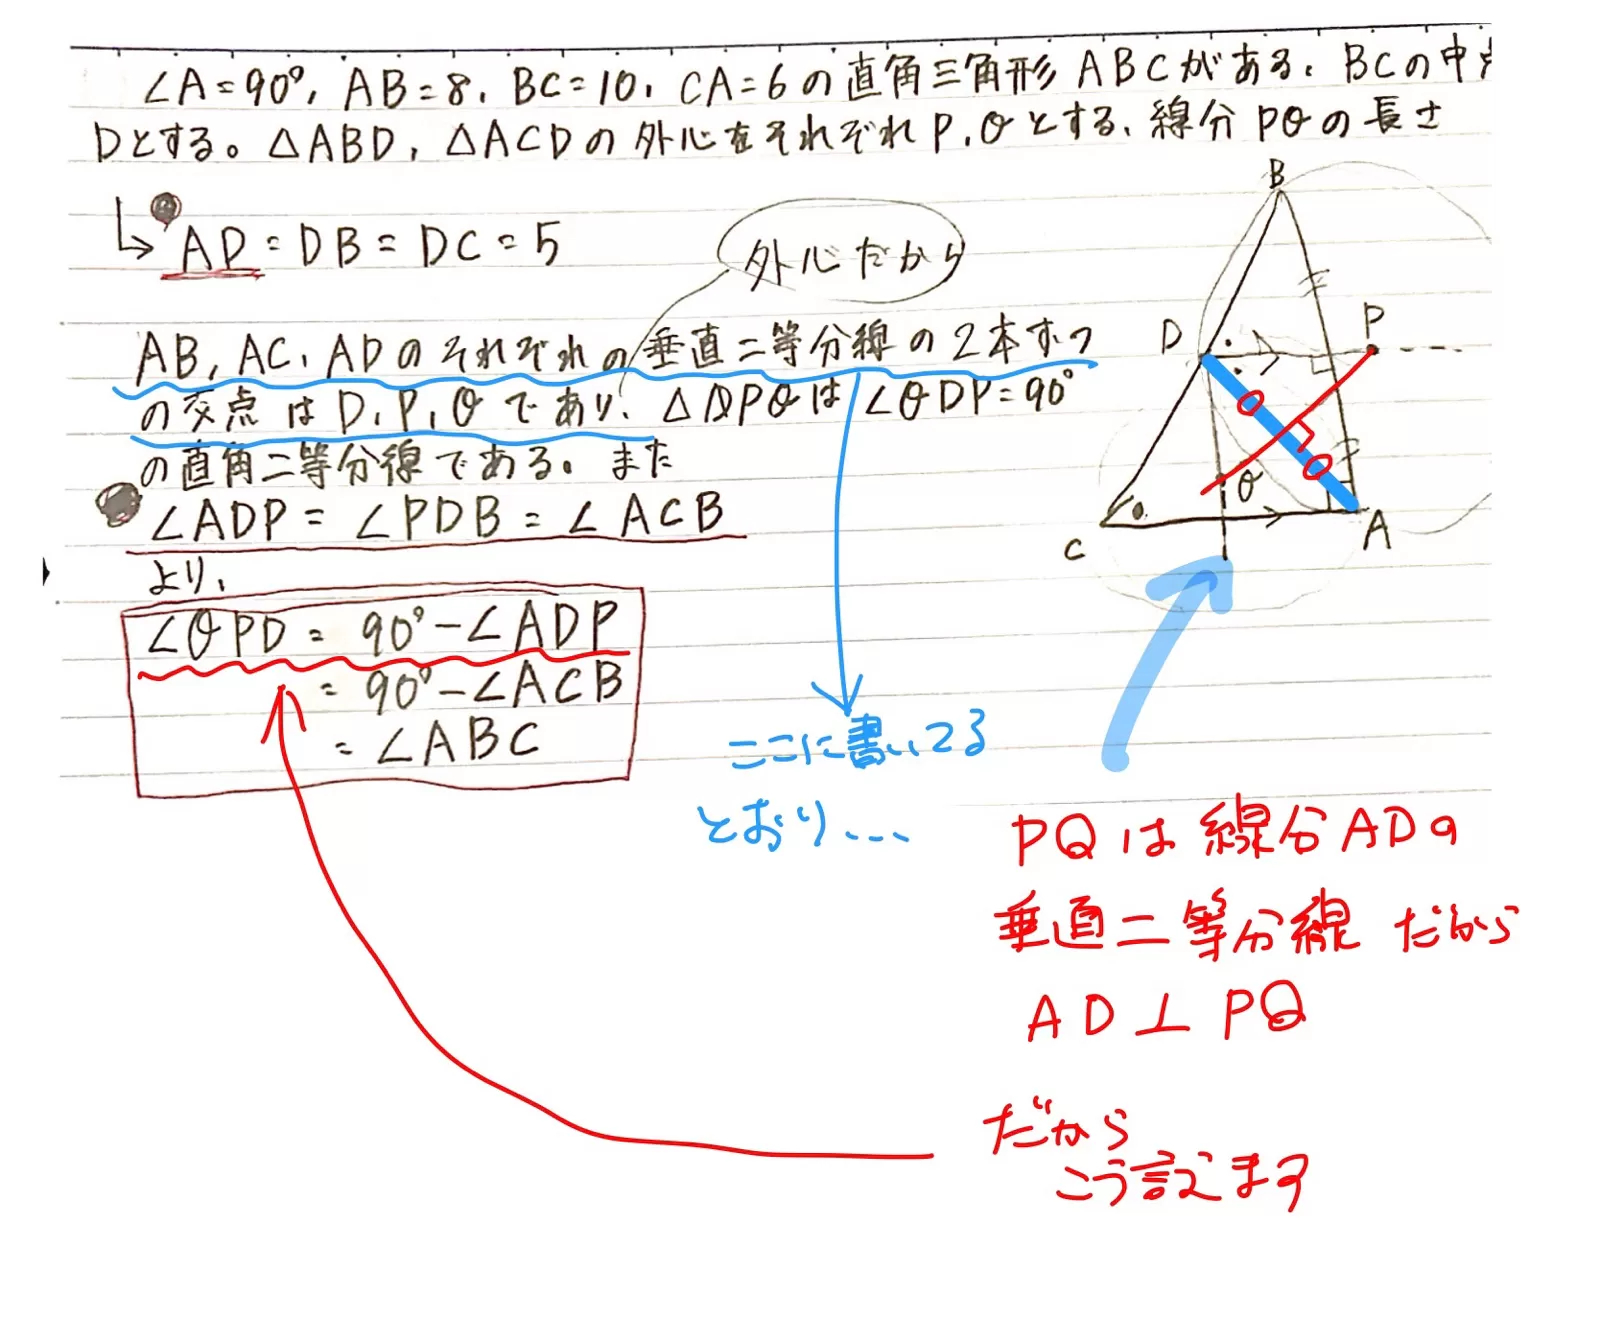 ∠A=90°, AB=8, BC=10, CA=6の直角三角形ABCがある。BCの中点
Dとする。△ABD, △ACDの外心をそれぞれP,Qとする、線分PQの長さ
AD=DB=DC=5
外心だから
AB, AC, ADのそれぞれの垂直二等分線の2本ずつ
の交点はD,P,Qであり、△DPQは∠QDP=90°
の直角二等分線である。また
∠ADP=∠PDB=∠ACB
より、
∠QPD=90°-∠ADP
=90°-∠ACB
=∠ABC
B
D
P
Q
C
A
ここに書いてる
とおり...
PQは線分ADの
垂直二等分線だから
AD⊥PQ
だから
こう言えます